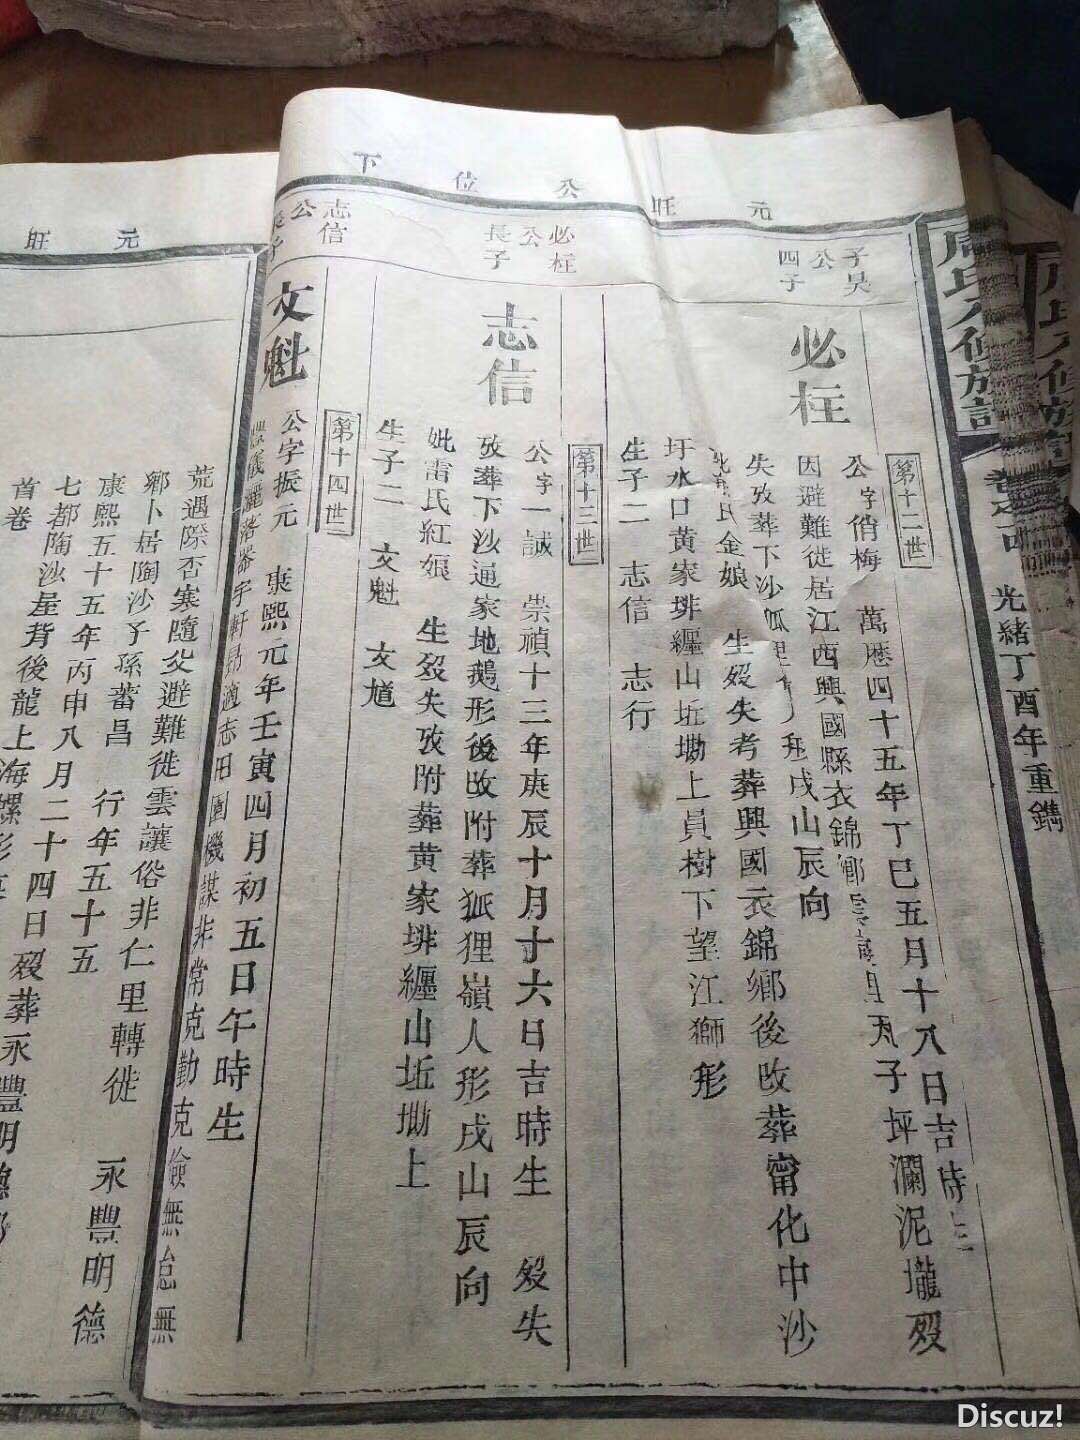 周氏八修族譜
光緒丁酉年重鐫
元旺公位下
第十二世
子昊公四子
必柱
公字俏梅 萬應四十五年丁巳五月十八日吉時生
因避難徙居江西興國縣衣錦鄉 里天子坪瀾泥壠歿
失攷葬下沙狐狸 形戌山辰向
氏金娘 生歿失考葬興國衣錦鄉後改葬甯化中沙
圩水口黃家排纏山坵墈上員樹下望江獅形
生子二 志信 志行
第十三世
必柱公長子
志信
公字一誠 崇禎十三年庚辰十月十六日吉時生 歿失
攷葬下沙通家地鵝形後改附葬狐狸嶺人形戌山辰向
妣雷氏紅娘 生歿失攷附葬黄家排纏山坵墈上
生子二 文魁 文馗
第十四世
志信公長子
文魁
公字振元 康熙元年壬寅四月初五日午時生
儀灑落器宇軒昂適志田園機謀非常克勤克儉無怠無
荒遇際否寒隨父避難徙雲讓俗非仁里轉徙 永豐明德
鄉卜居陶沙子孫蕃昌 行年五十五
康熙五十五年丙申八月二十四日歿葬永豐明德
七都陶沙屋背後龍上海螺形
首卷
元旺
Discuz!